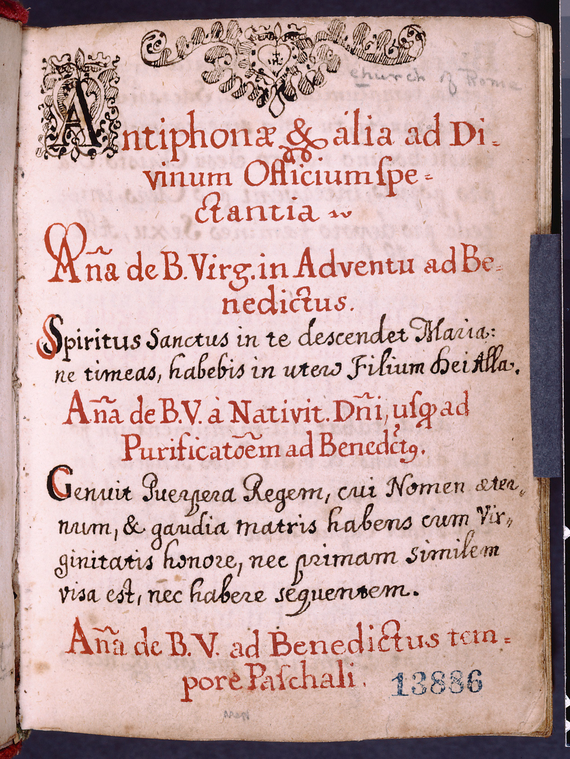 church of Rome
Antiphonæ & alia ad Di-
vinum Officium spe-
ctantia
Aña de B. Virg. in Adventu ad Be-
nedictus.
Spiritus Sanctus in te descendet Maria:
ne timeas, habebis in utero Filium Dei Alla.
Aña de B.V. à Nativit. Dñi, usq; ad
Purificatõem ad Benedict9.
Genuit Puerpera Regem, cui Nomen æter-
num, & gaudia matris habens cum Vir-
ginitatis honore, nec primam similem
visa est, nec habere sequentem.
Aña de B.V. ad Benedictus tem-
pore Paschali. 13886